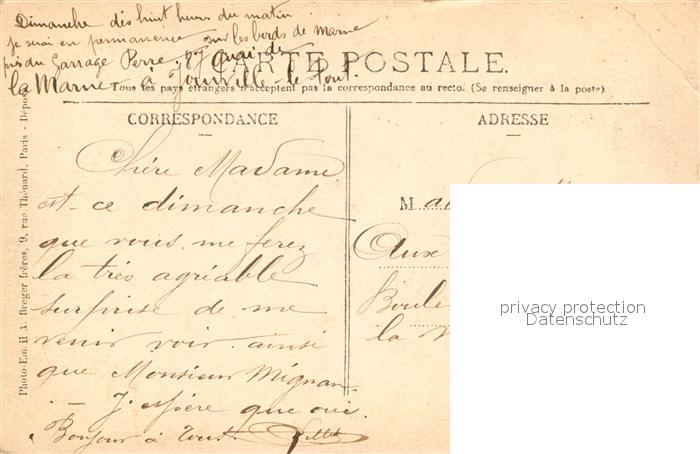 Dimanche dés huit heures du matin
je serai en permanence sur les bords de Marne
près du Garrage Perre, 87 quai de
la Marne à Joinville le Pont.
CARTE POSTALE.
Tous les pays étrangers n'acceptent pas la correspondance au recto. (Se renseigner à la poste)
CORRESPONDANCE
Chère Madame
est-ce dimanche
que vous me ferez
la très agréable
surprise de me
venir voir ainsi
que Monsieur Mignan
- J'espère que oui.
Bonjour à tous.
ADRESSE
M
Aux
Boule
la
privacy protection
Datenschutz
Photo-Email A. Breger frères, 9, rue Thénard, Paris - Dépos